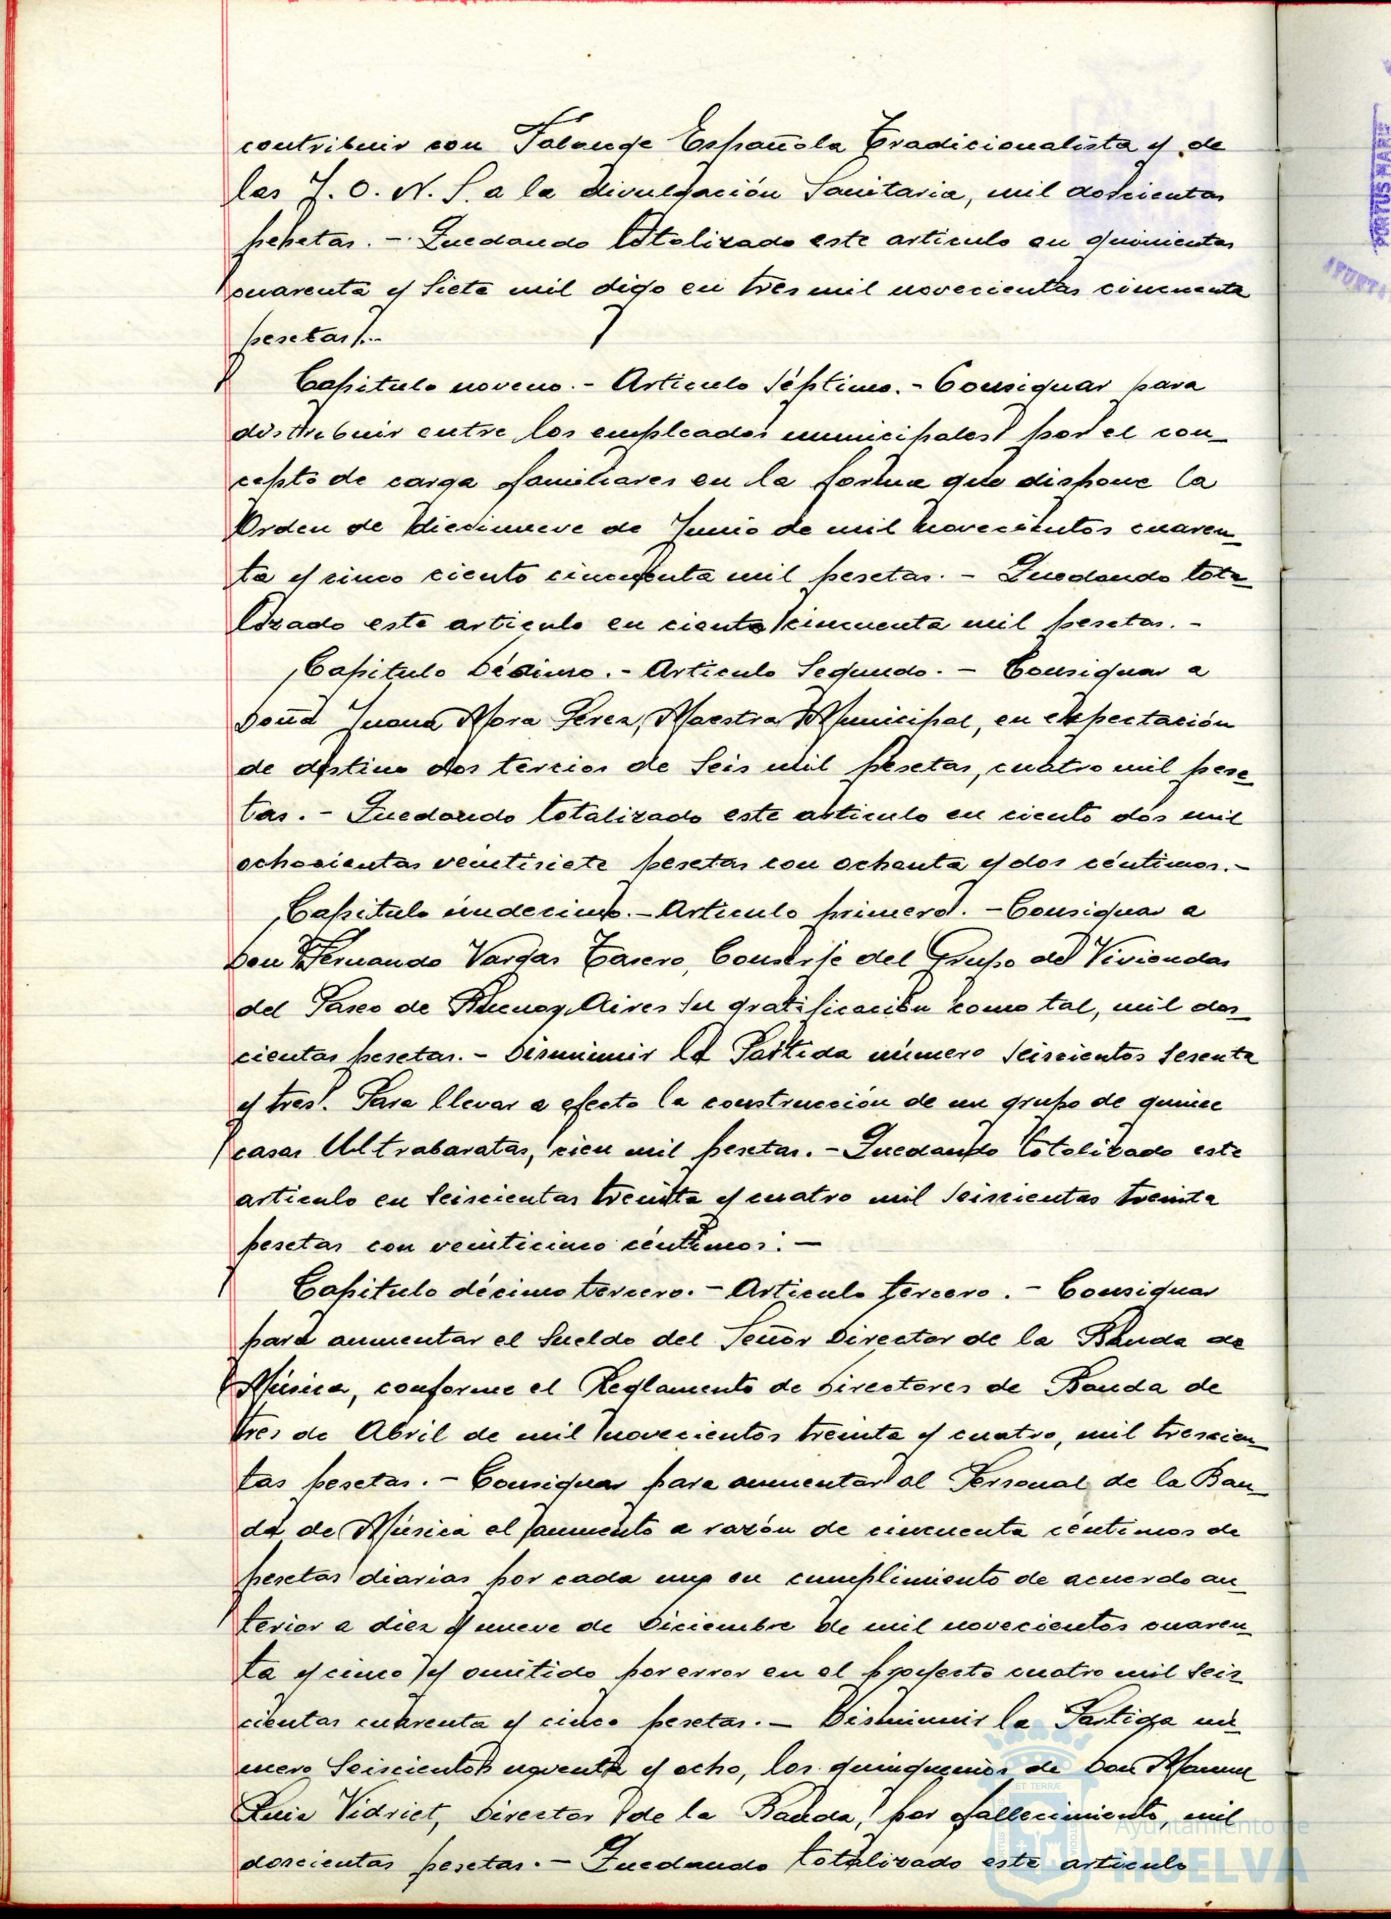 contribuir con Falange Española Tradicionalista y de
las J. O. N. S. a la divulgación Sanitaria, mil doscientas
pesetas. - Quedando totalizado este artículo en quinientas
cuarenta y siete mil digo en tres mil novecientas cincuenta
pesetas.-
Capitulo noveno. - Articulo Séptimo. - Consignar para
distribuir entre los empleados municipales por el con_
cepto de carga familiares en la forma que dispone la
Orden de diecinueve de Junio de mil novecientos cuaren_
ta y cinco ciento cincuenta mil pesetas. - Quedando tota_
lizado este articulo en ciento cincuenta mil pesetas. -
Capitulo Décimo. - Articulo Segundo. - Consignar a
Doña Juana Mora Perez, Maestra Municipal, en expectación
de destino dos tercios de Seis mil pesetas, cuatro mil pese_
tas. - Quedando totalizado este articulo en ciento dos mil
ochocientas veintisiete pesetas con ochenta y dos céntimos. -
Capitulo undecimo. - Articulo primero. - Consignar a
Don Fernando Vargas Tasero, Conserje del Grupo de Viviendas
del Paseo de Buenos Aires su gratificación como tal, mil dos_
cientas pesetas. - Disminuir la Partida número seiscientos sesenta
y tres. Para llevar a efecto la construcción de un grupo de quince
casas Ultrabaratas, cien mil pesetas. - Quedando totalizado este
articulo en seiscientas treinta y cuatro mil seiscientas treinta
pesetas con veinticinco céntimos. -
Capitulo décimo tercero. - Articulo tercero. - Consignar
para aumentar el Sueldo del Señor Director de la Banda de
Música, conforme el Reglamento de Directores de Banda de
tres de Abril de mil novecientos treinta y cuatro, mil trescien_
tas pesetas. - Consignar para aumentar al Personal de la Ban_
da de Música el aumento a razón de cincuenta céntimos de
pesetas diarias por cada uno en cumplimiento de acuerdo an_
terior a diez y nueve de Diciembre de mil novecientos cuaren_
ta y cinco y omitido por error en el proyecto cuatro mil seis
cientas cuarenta y cinco pesetas. - Disminuir la Partida nú_
mero Seiscientos noventa y ocho, los quinquenios de Don Manuel
Ruiz Vidriet, Director de la Banda, por fallecimiento, mil
doscientas pesetas. - Quedando totalizado este articulo
Ayuntamiento de
HUELVA
PORTUS MARIS